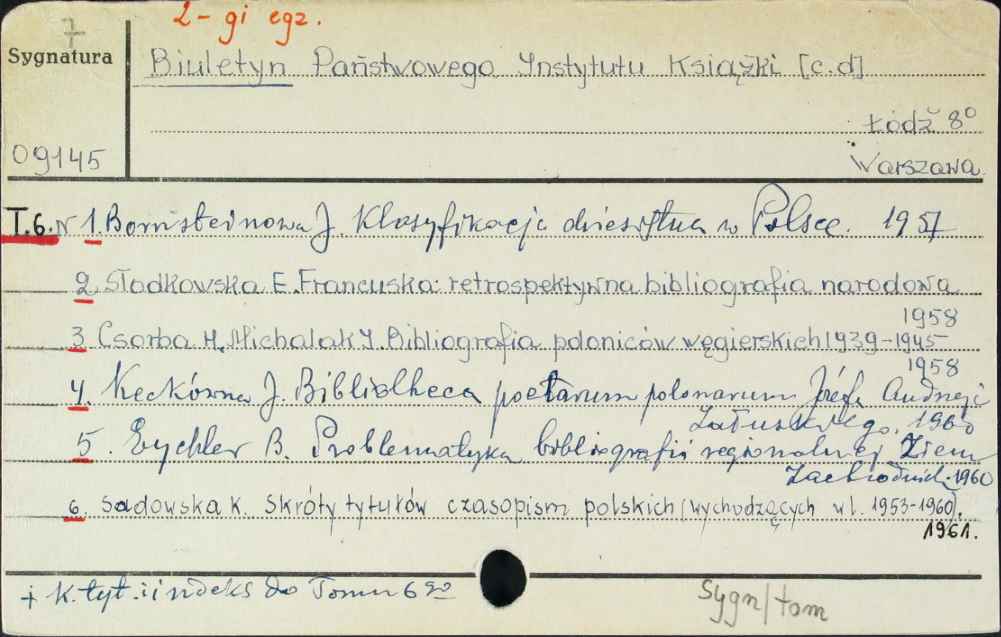 2-gi egz.
+
Sygnatura
Biuletyn Państwowego Instytutu Książki [c.d]
Łódź 8°
09145
Warszawa.
T.6. Nr 1. Bornsteinowa J. Klasyfikacja dziesiętna w Polsce. 1957
2 Słodkowska E. Francuska retrospektywna bibliografia narodowa
1958
3 Csorba H, Michalak J. Bibliografia poloniców węgierskich 1939-1945
1958
4. Keckówna J. Bibliotheca poetarum polonarum Józefa Andrzeja
Załuskiego. 1960
5. Eychler B. Problematyka bibliografii regionalnej Ziem
Zachodnich. 1960
6. Sadowska K. Skróty tytułów czasopism polskich (wychodzących w l. 1953-1960).
1961.
+ K. tyt. i indeks do Tomu 6 go
Sygn/tom